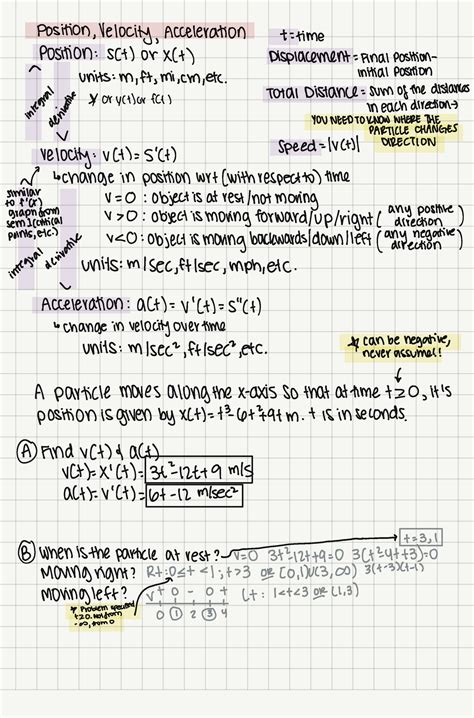 Position, Velocity, Acceleration
t = time
Position: s(t) or x(t)
units: m, ft, mi, cm, etc.
* or y(t) or f(t)
Displacement = Final Position -
Initial Position
Total Distance = sum of the distances
in each direction →
YOU NEED TO KNOW WHERE THE
PARTICLE CHANGES
DIRECTION
Speed = |v(t)|
integral
derivative
Velocity: v(t) = s'(t)
↳ change in position wrt (with respect to) time
v = 0 : object is at rest/not moving
v > 0 : object is moving forward/up/right (any positive direction)
v < 0 : object is moving backwards/down/left (any negative direction)
units: m/sec, ft/sec, mph, etc.
similar
to f'(x)
graph from
sem 1 (critical
points, etc.)
integral
derivative
Acceleration: a(t) = v'(t) = s"(t)
↳ change in velocity over time
units: m/sec², ft/sec², etc.
* can be negative,
never assume!!
A particle moves along the x-axis so that at time t ≥ 0, it's
position is given by x(t) = t³ - 6t² + 9t m. t is in seconds.
(A) Find v(t) & a(t)
v(t) = x'(t) = 3t² - 12t + 9 m/s
a(t) = v'(t) = 6t - 12 m/sec²
t = 3, 1
(B) When is the particle at rest? v = 0 3t² - 12t + 9 = 0 3(t² - 4t + 3) = 0
Moving right? Rt: 0 ≤ t < 1; t > 3 or [0,1)∪(3,∞) 3(t-3)(t-1)
Moving left? v + 0 - 0 + Lt: 1 < t < 3 or (1,3)
0 1 2 3 4
* Problem specified
t ≥ 0. Not from
-∞, from 0